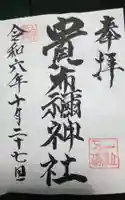 奉拝
貴布禰神社
令和六年十月二十七日